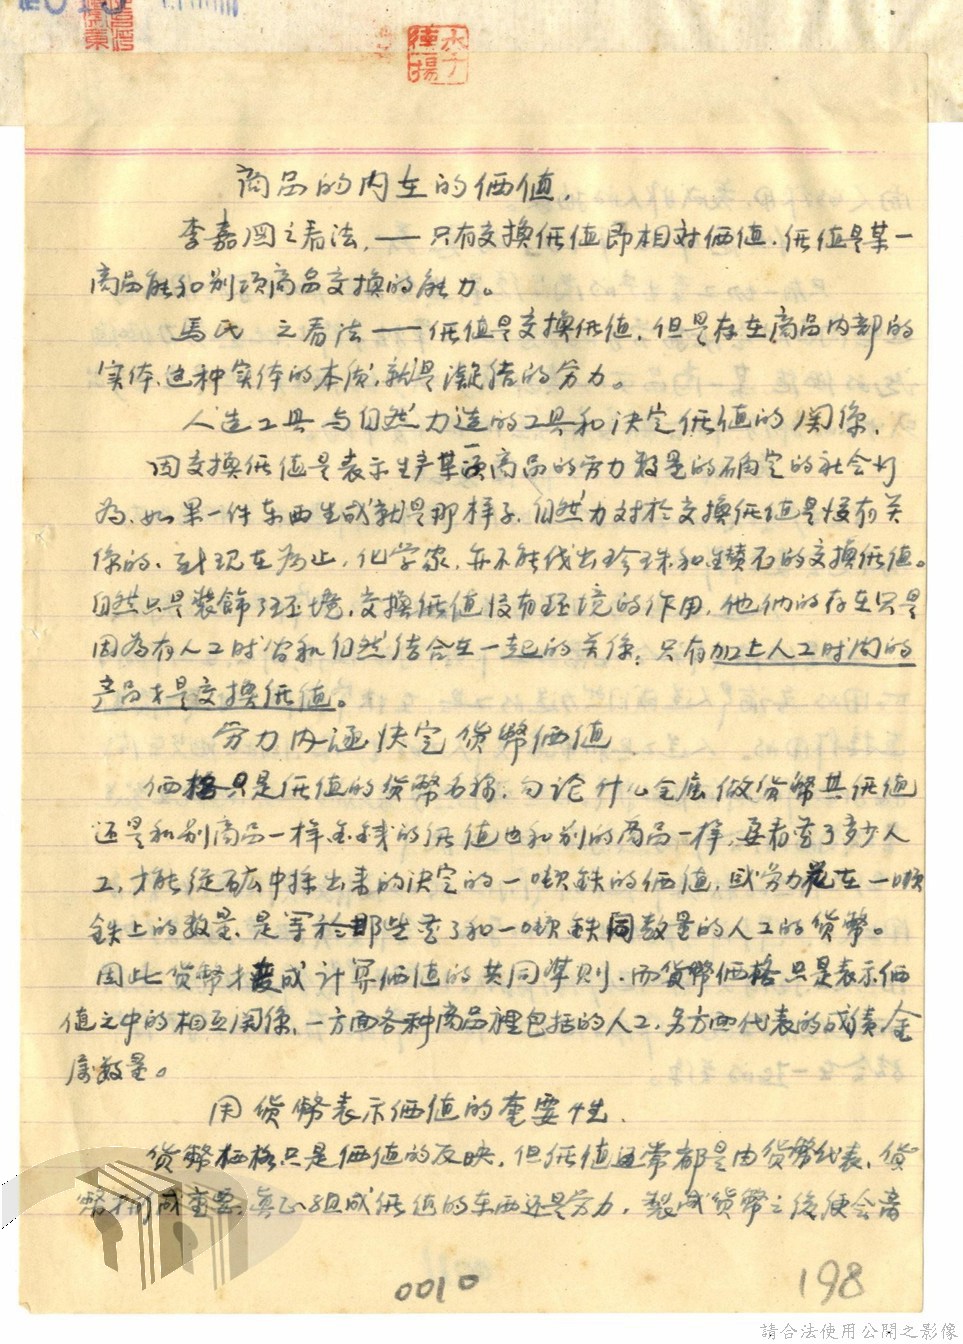 商品的内在的価值.
李嘉图之看法,——只有交換価值即相対価值.価值是某一
商品能和别項商品交換的能力。
馬氏 之看法——価值是交換価值,但是存在商品内部的
实体、这种实体的本质,就是凝结的劳力。
人造工具与自然力造的工具和决定価值的関係.
因交換価值是表示生产某項商品的劳力数量的确定的社会行
為、如果一件东西生成就是那样子,自然力对於交換価值是没有关
係的、到现在為止,化学家,并不能找出珍珠和鑽石的交換価值。
自然只是裝飾了环境,交換価值没有环境的作用,他们的存在只是
因為有人工时间和自然结合在一起的关係,只有加上人工时间的
产品才是交換価值。
劳力内涵决定貨幣価值
価格只是価值的貨幣名称,勿论什么金属做貨幣其価值
还是和别商品一样金钱的価值也和别的商品一样,要看费了多少人
工,才能從矿中採出来的决定的一噸鉄的価值,或劳力花在一噸
鉄上的数量、是等於那些费了和一噸鉄同数量的人工的貨幣。
因此貨幣才变成计算価值的共同準则.而貨幣価格只是表示価
值之中的相互関係,一方面各种商品裡包括的人工,另方面代表的成績金
属数量。
用貨幣表示価值的重要性.
貨幣価格只是価值的反映,但価值通常都是由貨幣代表、貨
幣才成重要,真正组成価值的东西还是劳力,製成貨幣之後便会
0010
198
請合法使用公開之影像